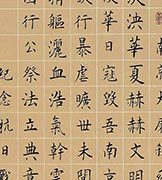 泱華夏赫赫文明
華日寇毀吾南
行暴虐曠世未聞
軀灑血浩氣干雲
國行公祭法立典章
紀念抗日